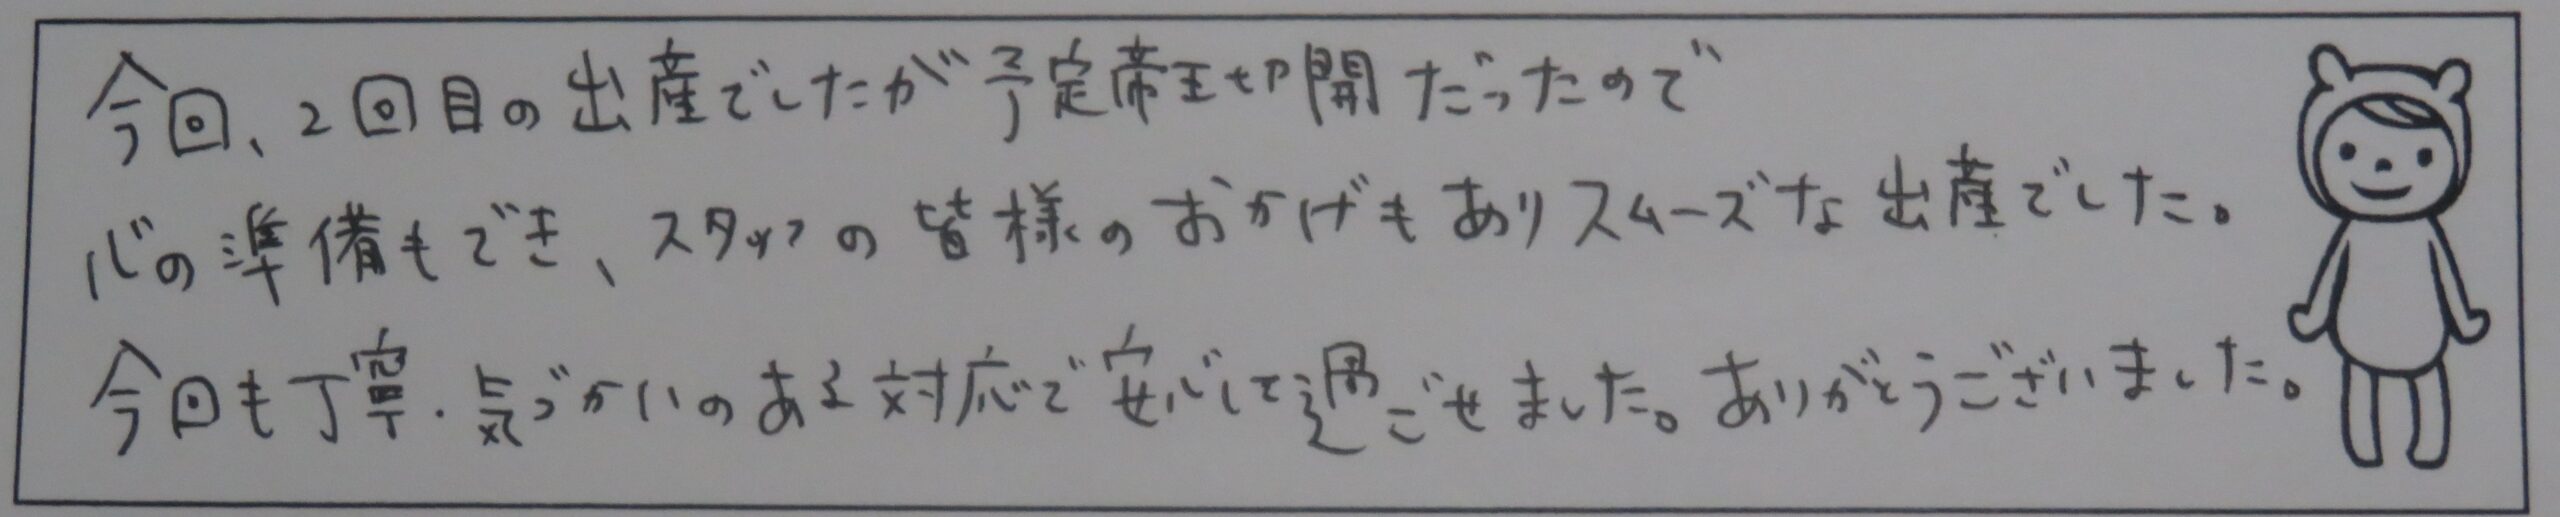 今回、2回目の出産でしたが予定帝王切開だったので
心の準備もでき、スタッフの皆様のおかげもありスムーズな出産でした。
今回も丁寧・気づかいのある対応で安心して過ごせました。ありがとうございました。